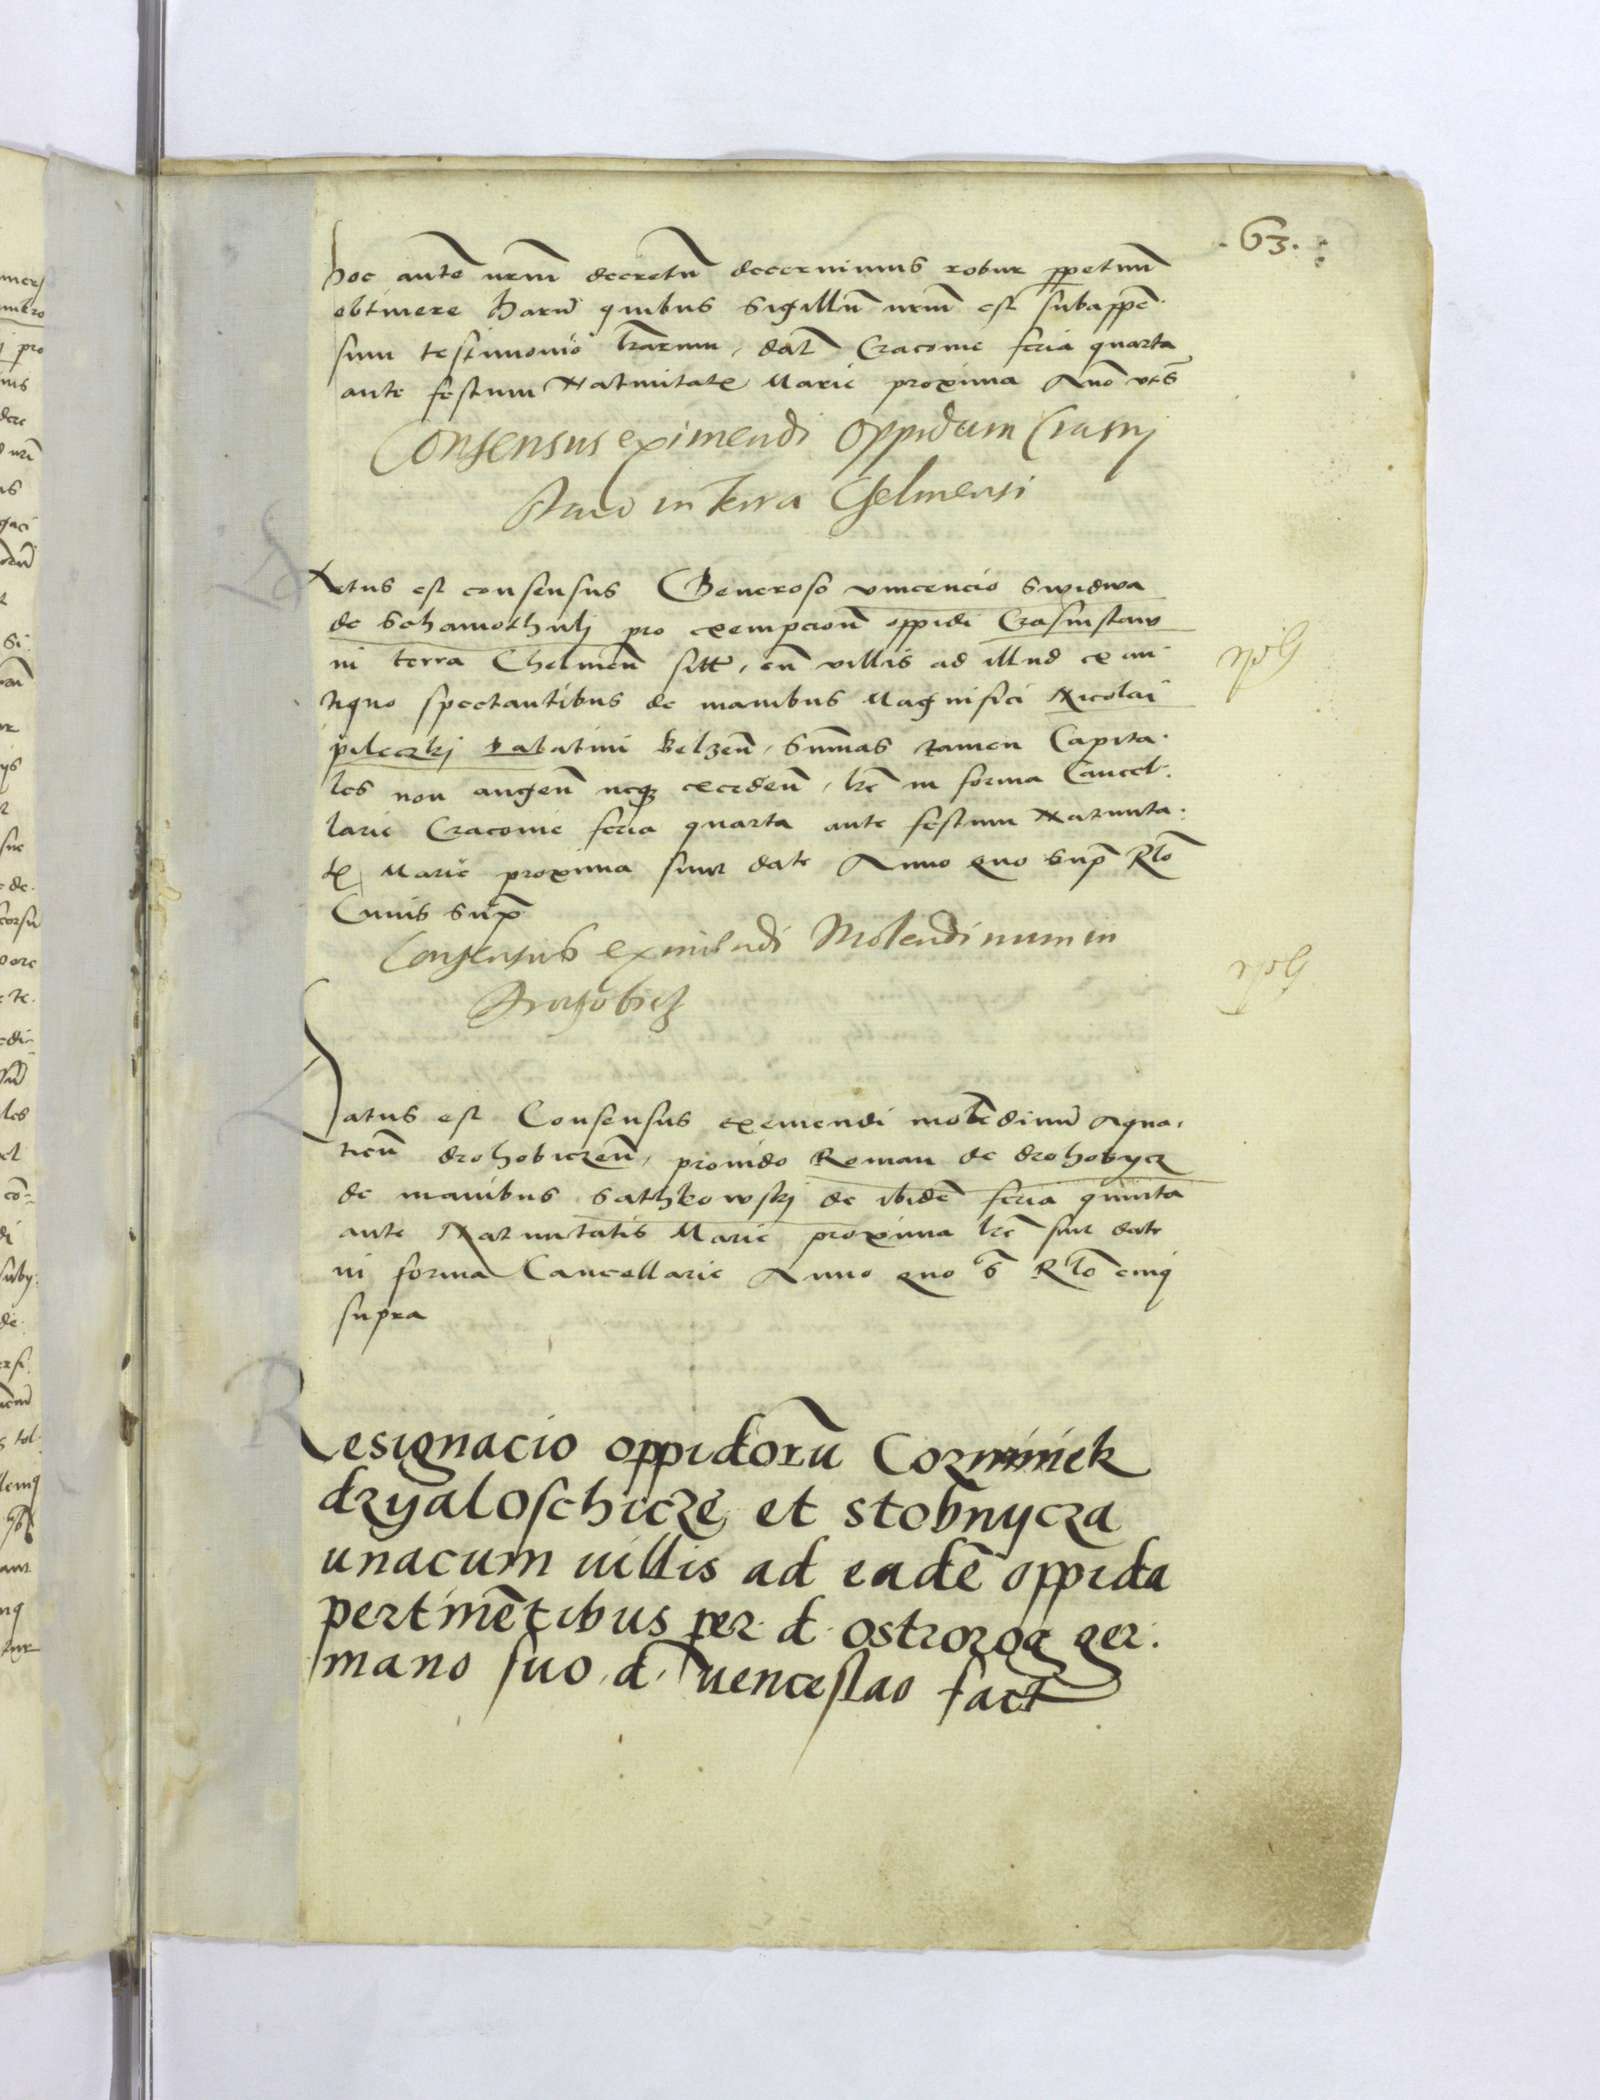 .63.
hoc autē nr̄m decretū decernimus robur ꝑpetuum
obtinere harū quibus Sigillū nr̄m est subappē-
sum testimonio lr̄arum, dat̄ Cracovie feria quarta
ante festum Nativitatꝭ Marie proxima Anō vt s̄
Consensus eximendi oppidum Crasni
staw in terra Chelmensi
Datus est consensus Generoso vincencio Swidwa
de Schamothulj pro exempcioñ oppidi Crasnistaw
in terra Chelmeñ sitt, cū villis ad illud ex an-
tiquo spectantibus de manibus Magnifici Nicolai
pileczkj palatini Belzeñ, Sūmas tamen Capita-
les non augeñ neqꝫ excedeñ, lr̄e in forma Cancel-
larie Cracovie feria quarta ante festum Nativita-
tꝭ Marie proxima sunt date Anno quo Supᵃ Rlō
Cuius supᵃ
Consensus eximendi Molendinum in
Drohobicz
Datus est Consensus exemendi molēdinū Aqua-
ticū drohobiczeñ, provido Roman de drohobycz
de manibus Sathkowskj de ibidē feria quinta
ante Nativitatis Marie proxima lr̄e sunt date
in forma Cancellarie Anno quo s̄ Rlō cuiꝯ
supra
Resignacio oppidorū Cozminiek
dzyaloschicze et stobnycza
unacum uillis ad eadē oppida
pertinētibus per d. ostrorog ger-
mano suo d. uenceslao fact